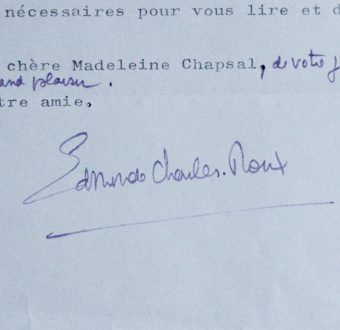 nécessaires pour vous lire et d
chère Madeleine Chapsal, de votre
and plaisir.
tre amie,
Edmonde Charles-Roux